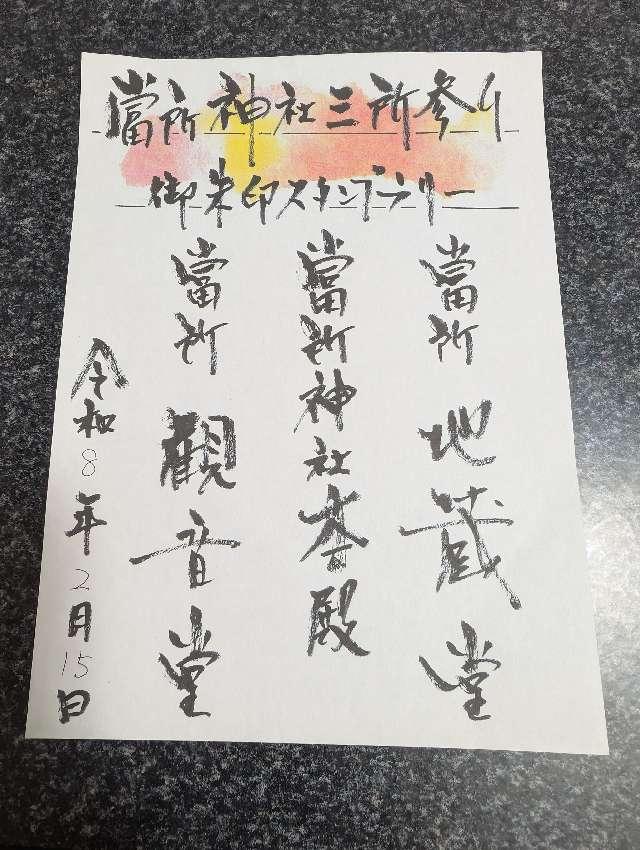 當所神社三所参り
御朱印スタンプラリー
當所 地蔵堂
當所神社本殿
當所 観音堂
令和8年2月15日